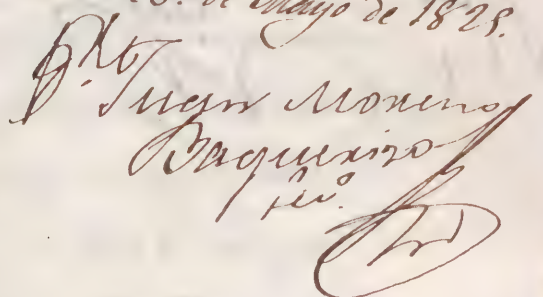 de Mayo de 1825.
Juan Moreno
Baquerizo